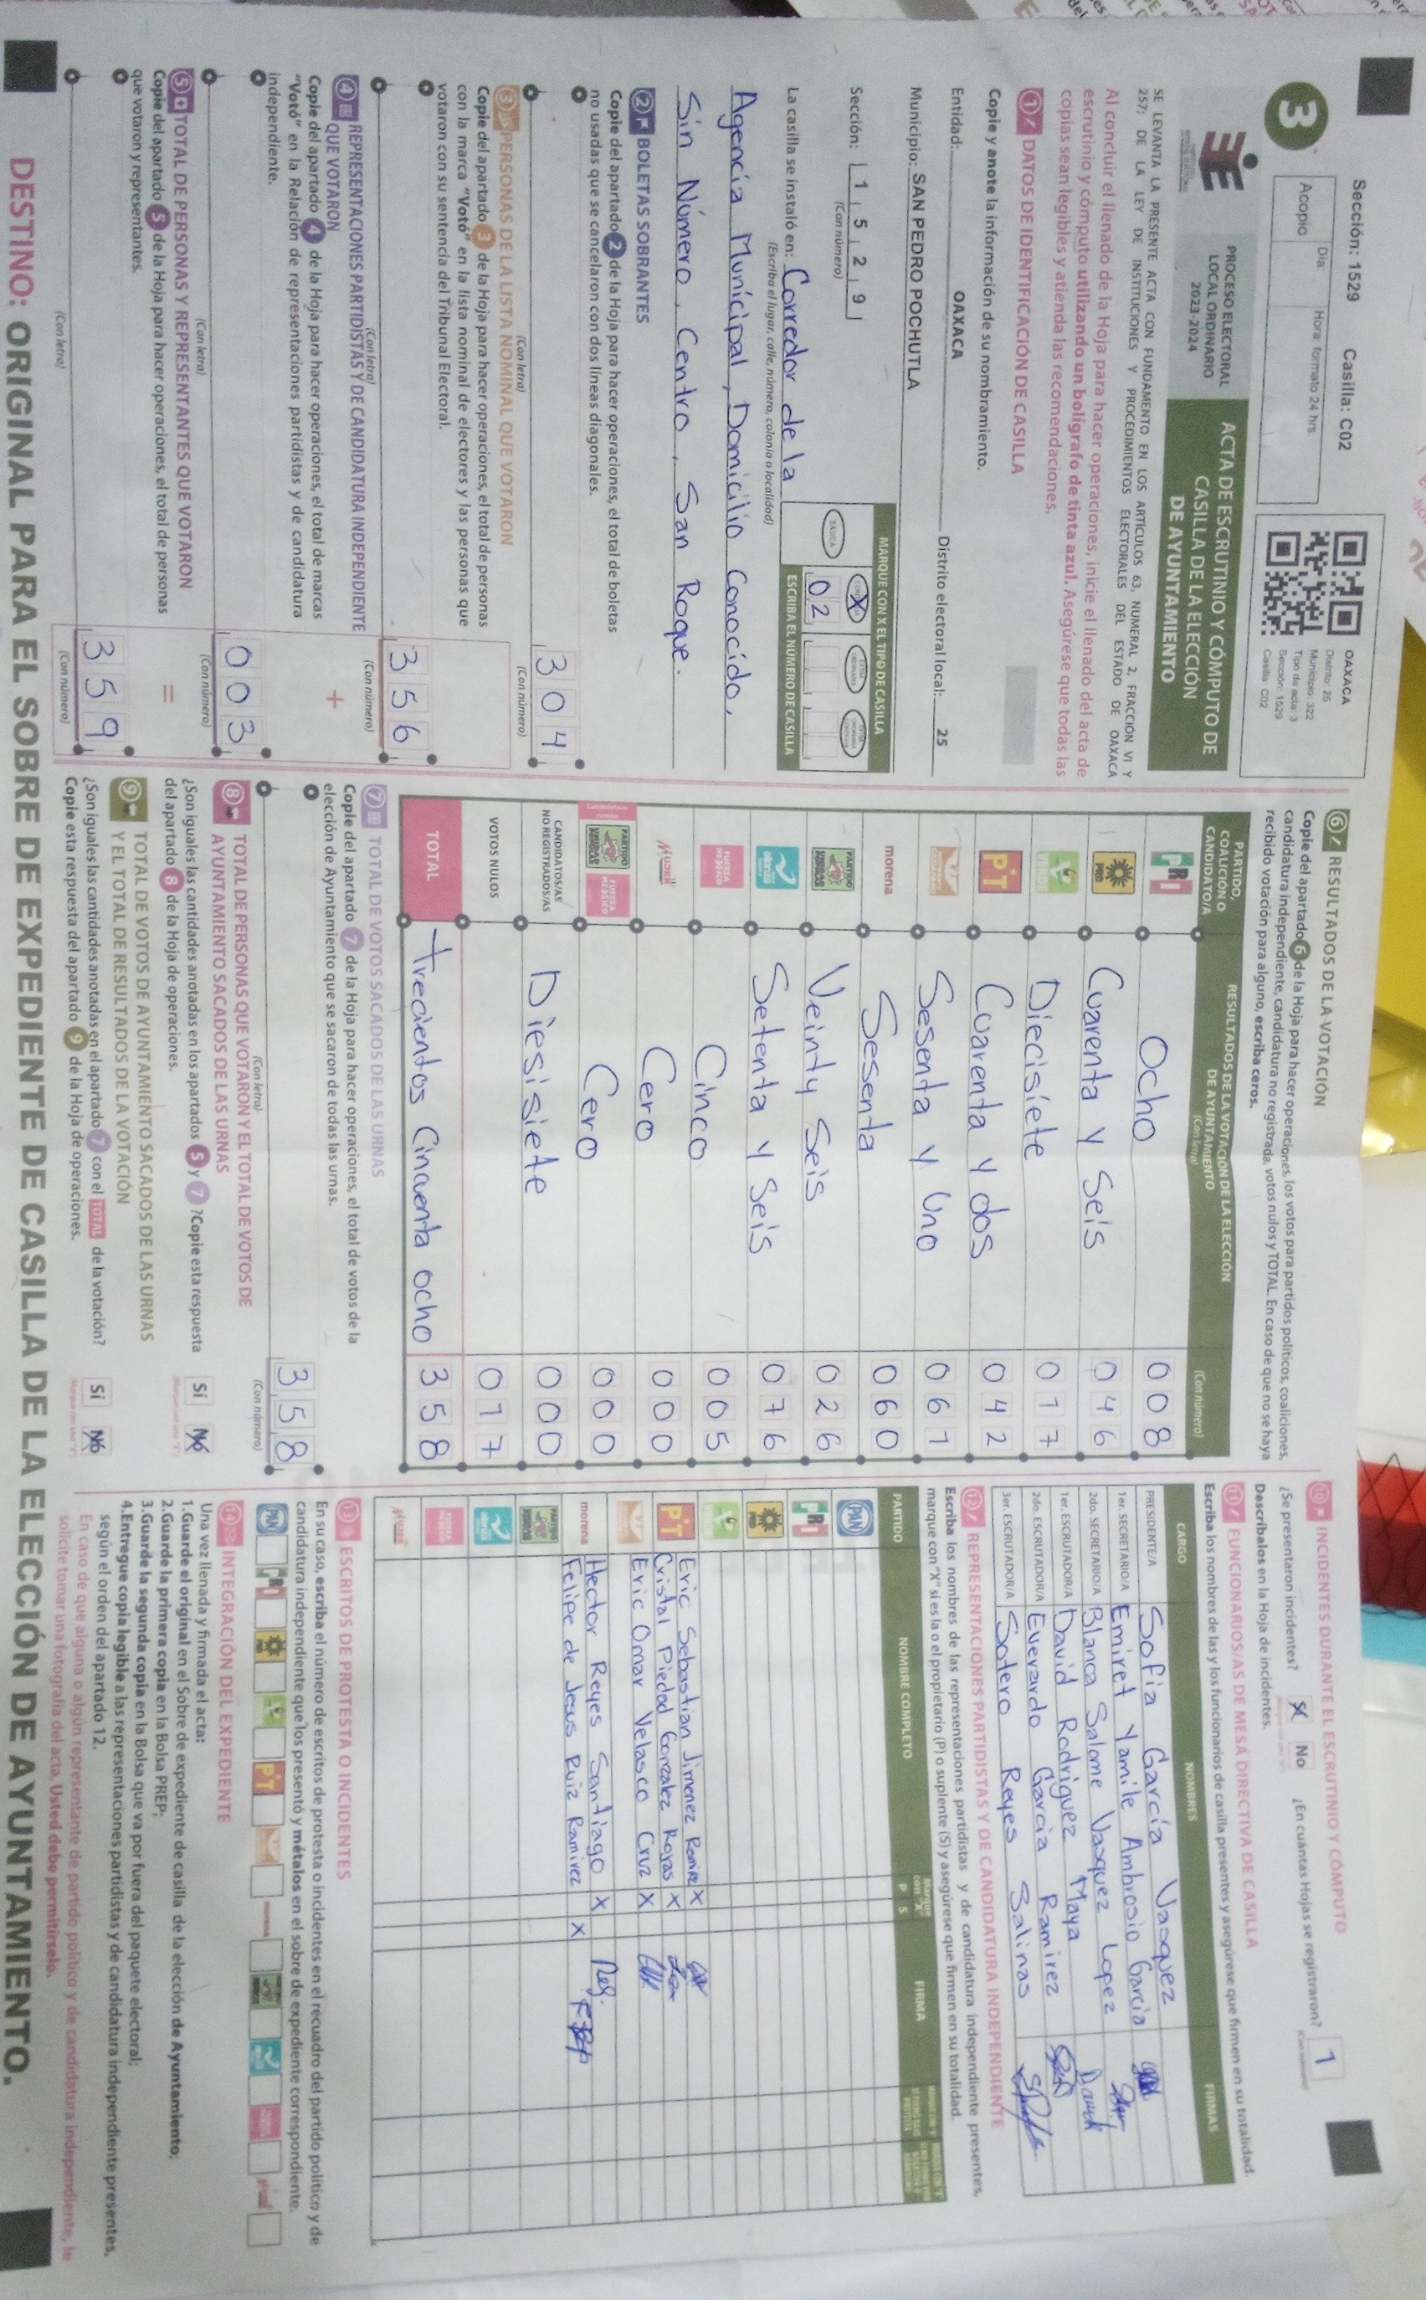 Sección: 1529 Casilla: C02
3
Día:
Hora: formato 24 hrs.
Acopio
OAXACA
Distrito: 25
Municipio: 322
Tipo de acta: 3
Sección: 1529
Casilla: C02
PROCESO ELECTORAL
LOCAL ORDINARIO
2023-2024
ACTA DE ESCRUTINIO Y CÓMPUTO DE
CASILLA DE LA ELECCIÓN
DE AYUNTAMIENTO
SE LEVANTA LA PRESENTE ACTA CON FUNDAMENTO EN LOS ARTÍCULOS 63, NUMERAL 2, FRACCIÓN VI Y
257; DE LA LEY DE INSTITUCIONES Y PROCEDIMIENTOS ELECTORALES DEL ESTADO DE OAXACA
Al concluir el llenado de la Hoja para hacer operaciones, inicie el llenado del acta de
escrutinio y cómputo utilizando un bolígrafo de tinta azul. Asegúrese que todas las
copias sean legibles y atienda las recomendaciones.
1 DATOS DE IDENTIFICACIÓN DE CASILLA
Copie y anote la información de su nombramiento.
Entidad: OAXACA Distrito electoral local: 25
Municipio: SAN PEDRO POCHUTLA
Sección: 1 5 2 9
(Con número)
MARQUE CON X EL TIPO DE CASILLA
BÁSICA X
02
ESCRIBA EL NÚMERO DE CASILLA
La casilla se instaló en: Corredor de la
(Escriba el lugar, calle, número, colonia o localidad)
Agencia Municipal, Domicilio Conocido,
Sin Número, Centro, San Roque.
2 BOLETAS SOBRANTES
Copie del apartado 2 de la Hoja para hacer operaciones, el total de boletas
no usadas que se cancelaron con dos líneas diagonales.
304
(Con letra) (Con número)
3 PERSONAS DE LA LISTA NOMINAL QUE VOTARON
Copie del apartado 3 de la Hoja para hacer operaciones, el total de personas
con la marca "Votó" en la lista nominal de electores y las personas que
votaron con su sentencia del Tribunal Electoral.
356
(Con letra) (Con número)
4 REPRESENTACIONES PARTIDISTAS Y DE CANDIDATURA INDEPENDIENTE
QUE VOTARON
Copie del apartado 4 de la Hoja para hacer operaciones, el total de marcas
"Votó" en la Relación de representaciones partidistas y de candidatura
independiente.
+
003
(Con letra) (Con número)
5 TOTAL DE PERSONAS Y REPRESENTANTES QUE VOTARON
Copie del apartado 5 de la Hoja para hacer operaciones, el total de personas
que votaron y representantes.
=
359
(Con letra) (Con número)
6 RESULTADOS DE LA VOTACIÓN
Copie del apartado 6 de la Hoja para hacer operaciones, los votos para partidos políticos, coaliciones,
candidatura independiente, candidatura no registrada, votos nulos y TOTAL. En caso de que no se haya
recibido votación para alguno, escriba ceros.
PARTIDO,
COALICIÓN O
CANDIDATO/A
RESULTADOS DE LA VOTACIÓN DE LA ELECCIÓN
DE AYUNTAMIENTO
(Con letra) (Con número)
PRI Ocho 008
PRD Cuarenta y Seis 046
VERDE Diecisiete 017
PT Cuarenta y dos 042
Sesenta y Uno 061
morena Sesenta 060
Veinty Seis 026
Setenta y Seis 076
Cinco 005
MUJER Cero 000
Cero 000
CANDIDATOS/AS
NO REGISTRADOS/AS 000
VOTOS NULOS Diesisiete 017
TOTAL trecientos Cincuenta ocho 358
7 TOTAL DE VOTOS SACADOS DE LAS URNAS
Copie del apartado 7 de la Hoja para hacer operaciones, el total de votos de la
elección de Ayuntamiento que se sacaron de todas las urnas.
358
(Con letra) (Con número)
8 TOTAL DE PERSONAS QUE VOTARON Y EL TOTAL DE VOTOS DE
AYUNTAMIENTO SACADOS DE LAS URNAS
¿Son iguales las cantidades anotadas en los apartados 5 y 7? Copie esta respuesta
del apartado 8 de la Hoja de operaciones.
Sí No
9 TOTAL DE VOTOS DE AYUNTAMIENTO SACADOS DE LAS URNAS
Y EL TOTAL DE RESULTADOS DE LA VOTACIÓN
¿Son iguales las cantidades anotadas en el apartado 7 con el TOTAL de la votación?
Copie esta respuesta del apartado 9 de la Hoja de operaciones.
Sí No
10 INCIDENTES DURANTE EL ESCRUTINIO Y CÓMPUTO
¿Se presentaron incidentes? Sí No ¿En cuántas Hojas se registraron? 1
Descríbalos en la Hoja de incidentes.
11 FUNCIONARIOS/AS DE MESA DIRECTIVA DE CASILLA
Escriba los nombres de las y los funcionarios de casilla presentes y asegúrese que firmen en su totalidad.
CARGO NOMBRES FIRMAS
PRESIDENTE/A Sofia Garcia Vasquez
1er. SECRETARIO/A Emiret Yamile Ambrosio Garcia
2do. SECRETARIO/A Blanca Salome Vasquez Lopez
1er. ESCRUTADOR/A David Rodriguez Maya
2do. ESCRUTADOR/A Everardo Garcia Ramirez
3er. ESCRUTADOR/A Sotero Reyes Salinas
12 REPRESENTACIONES PARTIDISTAS Y DE CANDIDATURA INDEPENDIENTE
Escriba los nombres de las representaciones partidistas y de candidatura independiente presentes,
marque con "X" si es la o el propietario (P) o suplente (S) y asegúrese que firmen en su totalidad.
PARTIDO NOMBRE COMPLETO Marque con "X" P S FIRMA
PAN
PRI
PRD
VERDE
PT Eric Sebastian Jimenez Ramirez X
Cristal Piedad Gonzalez Rojas X
Eric Omar Velasco Cruz X
morena Hector Reyes Santiago X
Felipe de Jesus Ruiz Ramirez X
MUJER
13 ESCRITOS DE PROTESTA O INCIDENTES
En su caso, escriba el número de escritos de protesta o incidentes en el recuadro del partido político y de
candidatura independiente que los presentó y métalos en el sobre de expediente correspondiente.
PAN PRI PRD VERDE PT morena
14 INTEGRACIÓN DEL EXPEDIENTE
Una vez llenada y firmada el acta:
1.Guarde el original en el Sobre de expediente de casilla de la elección de Ayuntamiento;
2.Guarde la primera copia en la Bolsa PREP;
3.Guarde la segunda copia en la Bolsa que va por fuera del paquete electoral;
4.Entregue copia legible a las representaciones partidistas y de candidatura independiente presentes,
según el orden del apartado 12.
En caso de que alguna o algún representante de partido político y de candidatura independiente, le
solicite tomar una fotografía del acta. Usted debe permitírselo.
DESTINO: ORIGINAL PARA EL SOBRE DE EXPEDIENTE DE CASILLA DE LA ELECCIÓN DE AYUNTAMIENTO.